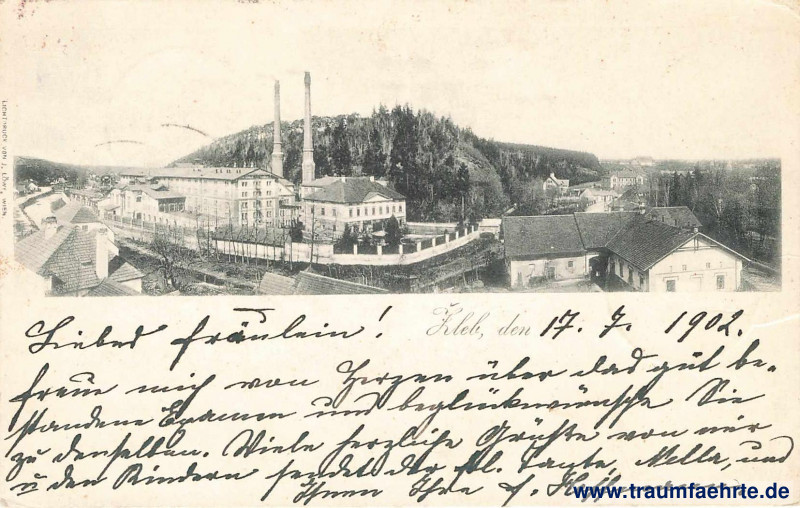 LICHTDRUCK VON J. LÖWY, WIEN.
Liebes Fräulein! Kleb, den 17. 7. 1902.
freue mich von Herzen über das gut be-
standene Examen und beglückwünsche Sie
zu denselben. Viele herzliche Grüße von mir
u den Kindern sendet der fl. Tante, Mella, und
Ihnen Ihre
www.traumfaehrte.de